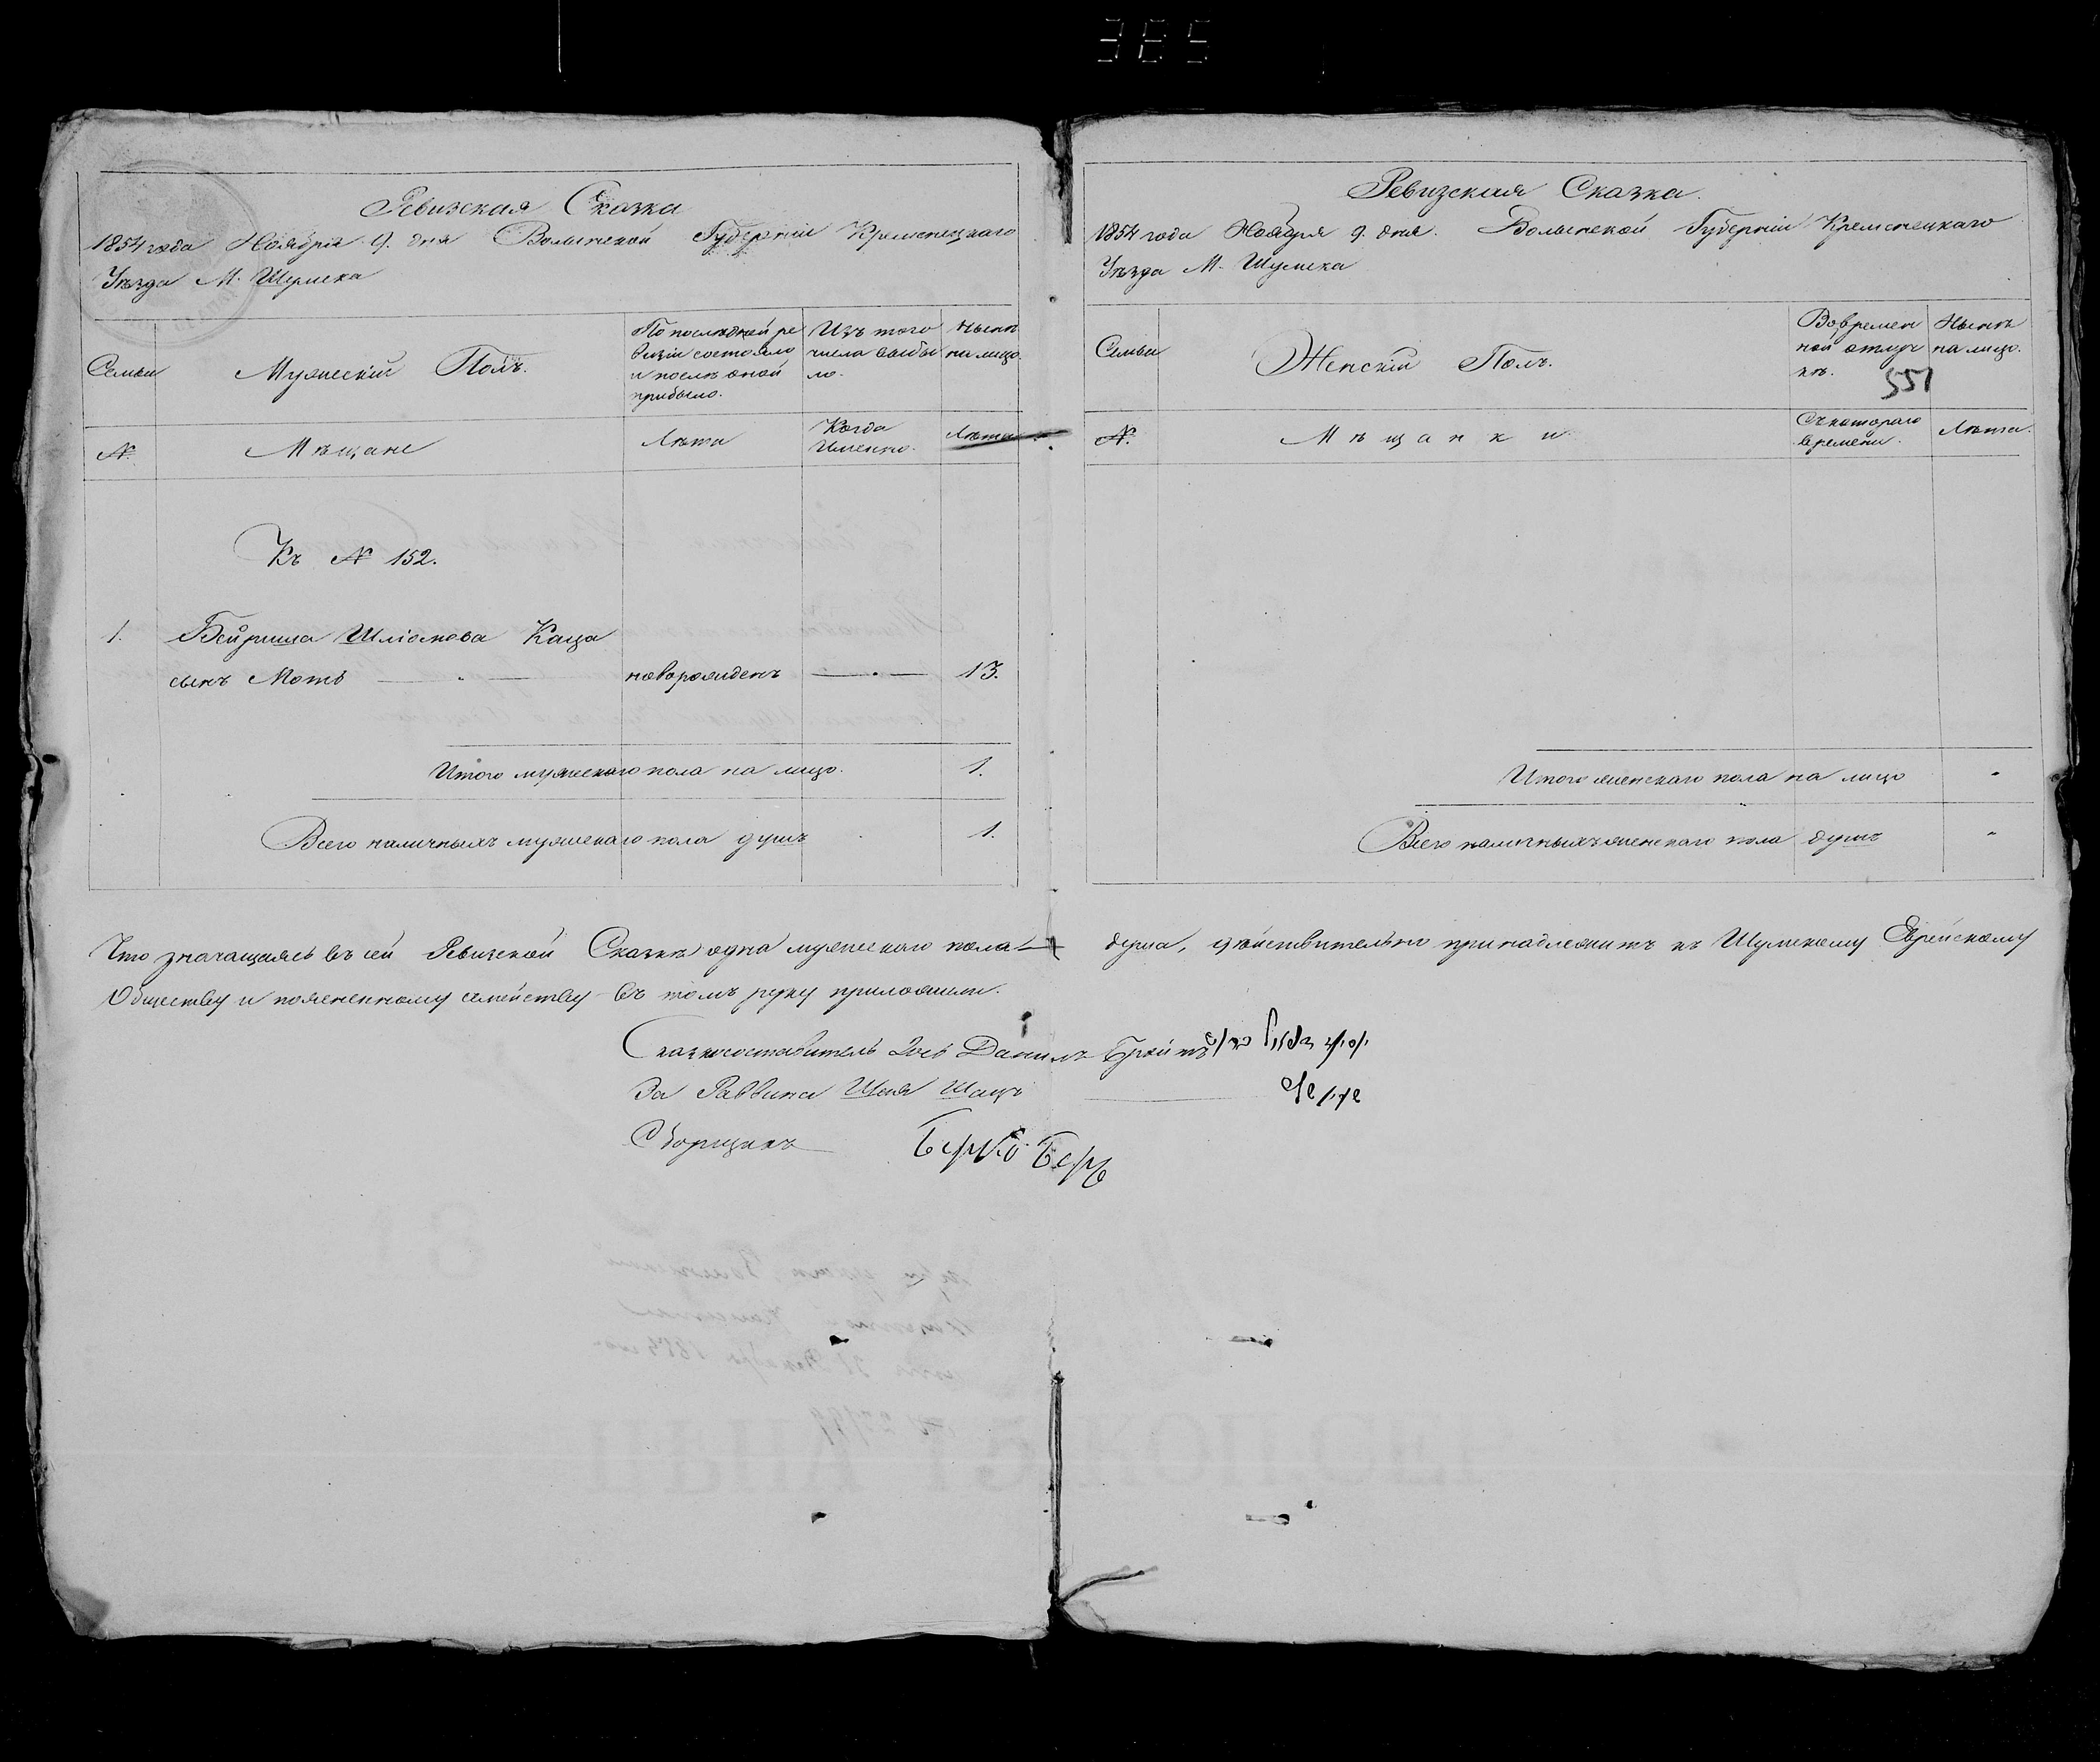 385
Ревизская Сказка
1854 года Ноября 9. дня Волынской Губерніи Кременецкаго
Уѣзда М. Шумска
Семьи
Мужескій Полъ.
По последней ре
визіи состояло
и послѣ оной
прибыло.
Изъ того
числа выбы
ло.
Нынѣ
на лицо.
№
Мѣщане
Лѣта
Когда
Именно.
Лѣта
Къ № 152.
1. Бейриша Шліомова Каца
сынъ Мотъ новорожденъ 13.
Итого мужескаго пола на лицо. 1.
Всего наличныхъ мужескаго пола душъ 1.
Ревизская Сказка.
1854 года Ноября 9. дня. Волынской Губерніи Кременецкаго
Уѣзда М. Шумска
Семьи
Женскій Полъ.
Во времен
ной отлуч
кѣ.
Нынѣ
на лицо.
551
№.
Мѣщанки
Съ котораго
времени.
Лѣта.
Итого женскаго пола на лицо
Всего наличныхъ женскаго пола душъ
Что значащаяся въ сей Ревизской Сказкѣ одна мужескаго пола душа, дѣйствительно принадлежитъ къ Шумскому Еврейскому
Обществу и поясненному семейству въ томъ руку приложили.
Сказкосоставитель Іось Данилъ
За Раввина Шая Шацъ
Сборщикъ Берко Беръ